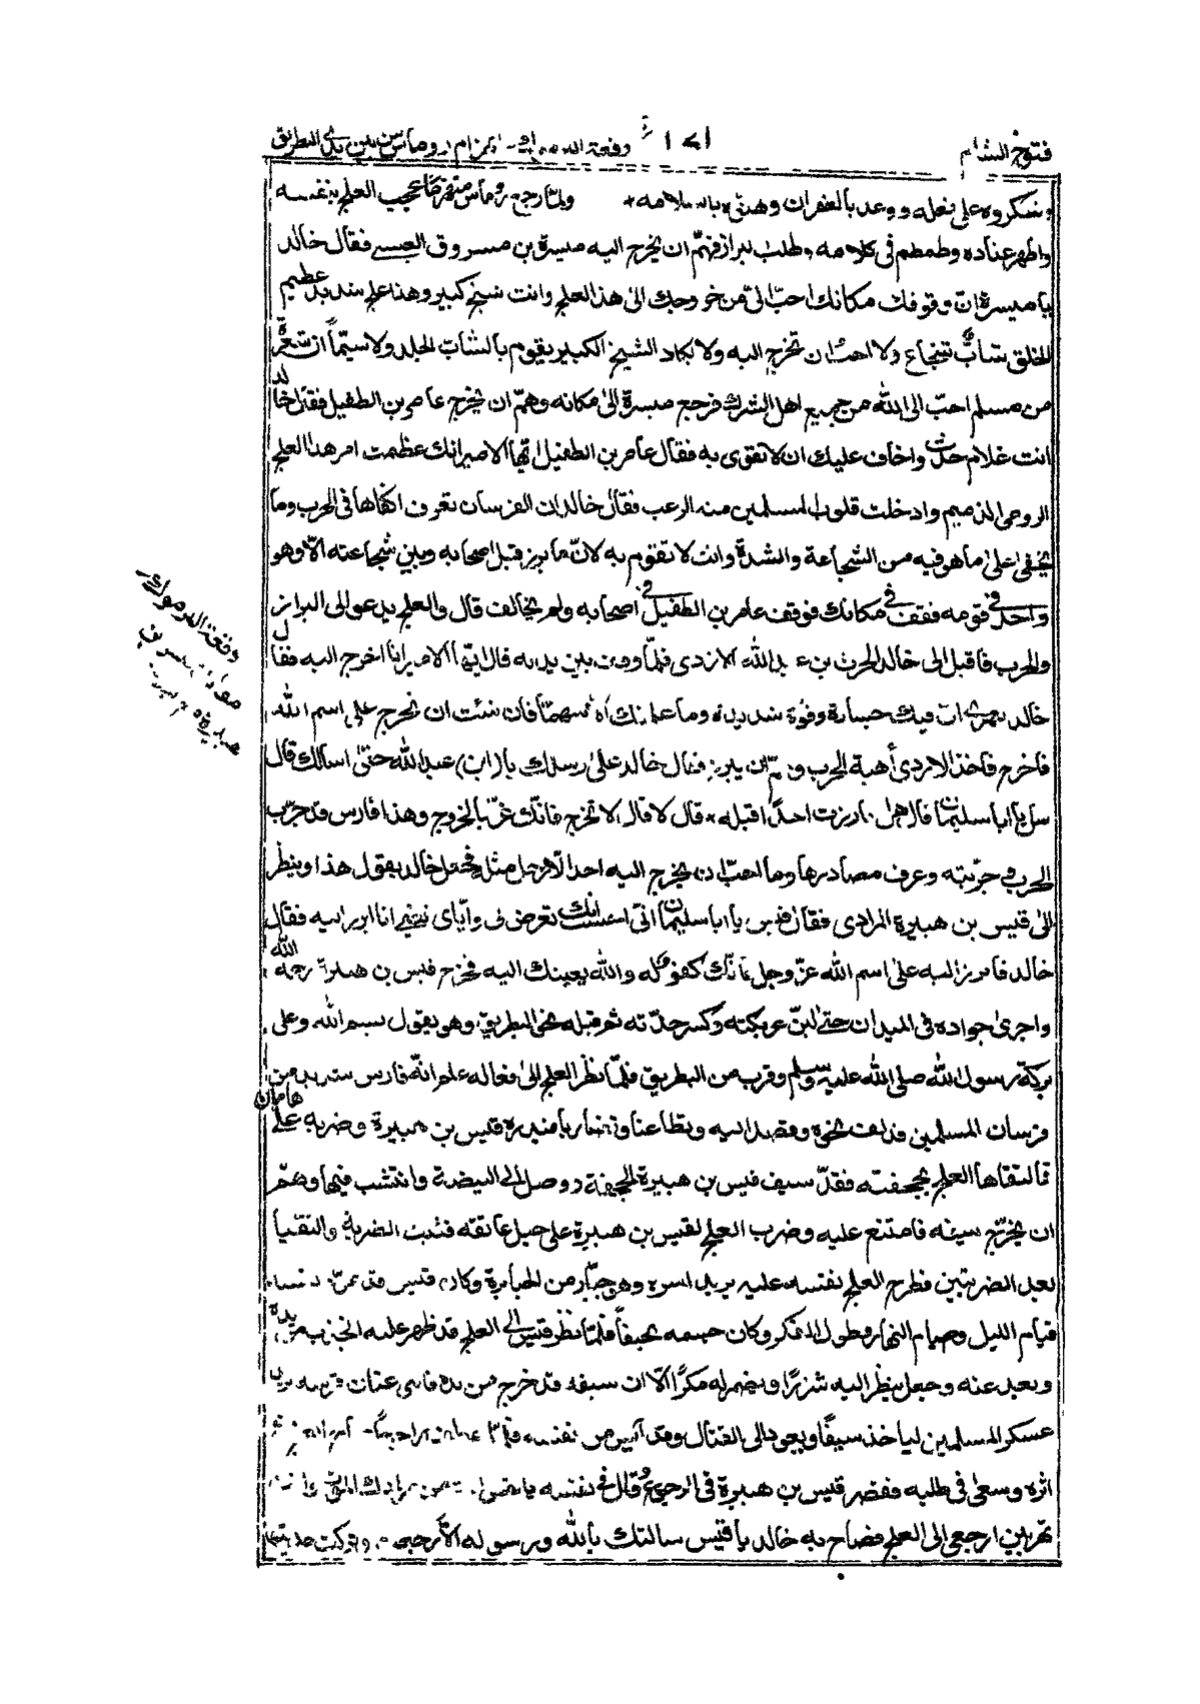 فتوح الشام ١٧١ وقعة اليرموك انهزام روماس من بين يدي البطريق
وشكروه على فعله ووعد بالغفران وهنوه بالسلامه + ولما رجع روماس منهزما عجب العلج بنفسه
واظهر عناده وطمطم في كلامه وطلب البراز فهم ان يخرج اليه ميسرة بن مسروق العبسي فقال خالد
يا ميسرة ان وقوفك مكانك احب الي من خروجك الى هذا العلج وانت شيخ كبير وهذا علج شديد عظيم
الخلق شاب شجاع ولا احب ان تخرج اليه ولا يكاد الشيخ الكبير يقوم بالشاب الجلد ولا سيما ان شعرة
من مسلم احب الى الله من جميع اهل الشرك فرجع ميسرة الى مكانه وهم ان يخرج عامر بن الطفيل فقال خالد
انت غلام حدث واخاف عليك ان لا تقوى به فقال عامر بن الطفيل ايها الامير انك عظمت امر هذا العلج
الرومي الذميم وادخلت قلوب المسلمين منه الرعب فقال خالد ان الفرسان تعرف اكفاها في الحرب وما
يخفى علي ما هو فيه من الشجاعة والشدة وانت لا تقوم به لان ما برز قبل اصحابه وبين شجاعته الا وهو
واحد في قومه فقف في مكانك فوقف عامر بن الطفيل في اصحابه ولم يخالف قال والعلج يدعو الى البراز
والحرب فاقبل الى خالد الحرث بن عبد الله الازدي فلما وقف بين يديه قال ايها الامير انا اخرج اليه فقال
خالد لعمري ان فيك جسارة وقوة شديدة وما علمتك الا شهما فان شئت ان تخرج على اسم الله
فاخرج فاخذ الازدي أهبة الحرب وهم ان يبرز فقال خالد على رسلك يا (ابن) عبد الله حتى اسالك قال
سل يا ابا سليمان قال هل بارزت احدا قبله * قال لا قال لا تخرج فانك غر بالخروج وهذا فارس قد جرب
الحرب وجربته وعرف مصادرها وما احب ان يخرج اليه احد الا رجل مثله فجعل خالد يقول هذا وينظر
الى قيس بن هبيرة المرادي فقال قيس يا ابا سليمان اني احسبك انك تعرض لي واياي تعني انا ابرز اليه فقال
خالد فابرز اليه على اسم الله عز وجل فانك كفؤ له والله يعينك اليه فخرج قيس بن هبيرة رحمه الله
واجرى جواده في الميدان حتى لين عريكته وكسر حدته ثم قبله نحو البطريق وهو يقول بسم الله وعلى
بركة رسول الله صلى الله عليه وسلم وقرب من البطريق فلما نظر العلج الى فعاله علم انه فارس شديد من
فرسان المسلمين فدلف نحوه وقصد اليه وتطاعنا وتضاربا فبدره قيس بن هبيرة وضربه على هامان
فالتقاها العلج بحجفته فقد سيف قيس بن هبيرة الحجفة ووصل الى البيضة وانتشب فيها وهم
ان يخرج سيفه فامتنع عليه وضرب العلج لقيس بن هبيرة على حبل عاتقه فثبت الضربة والتقيا
بعد الضربتين فطرح العلج نفسه عليه يريد اسره وهو جبار من الجبابرة وكان قيس قد
قيام الليل وصيام النهار وطول الفكر وكان جسمه نحيفا فلما نظر قيس الى العلج قد ظهر عليه الجذب من يده
وبعد عنه وجعل ينظر اليه شزرا ويضمر له مكرا الا ان سيفه قد خرج من يده عنان يريد
عسكر المسلمين لياخذ سيفا ويعود الى القتال وقد آيس من نفسه فلما
اثره وسعى في طلبه فقصر قيس بن هبيرة في الرجوع وقال في نفسه يا
تهربين ارجعي الى العلج فصاح به خالد يا قيس سالتك بالله ورسوله الا رجعت وتركت
وقعة اليرموك
هبيرة